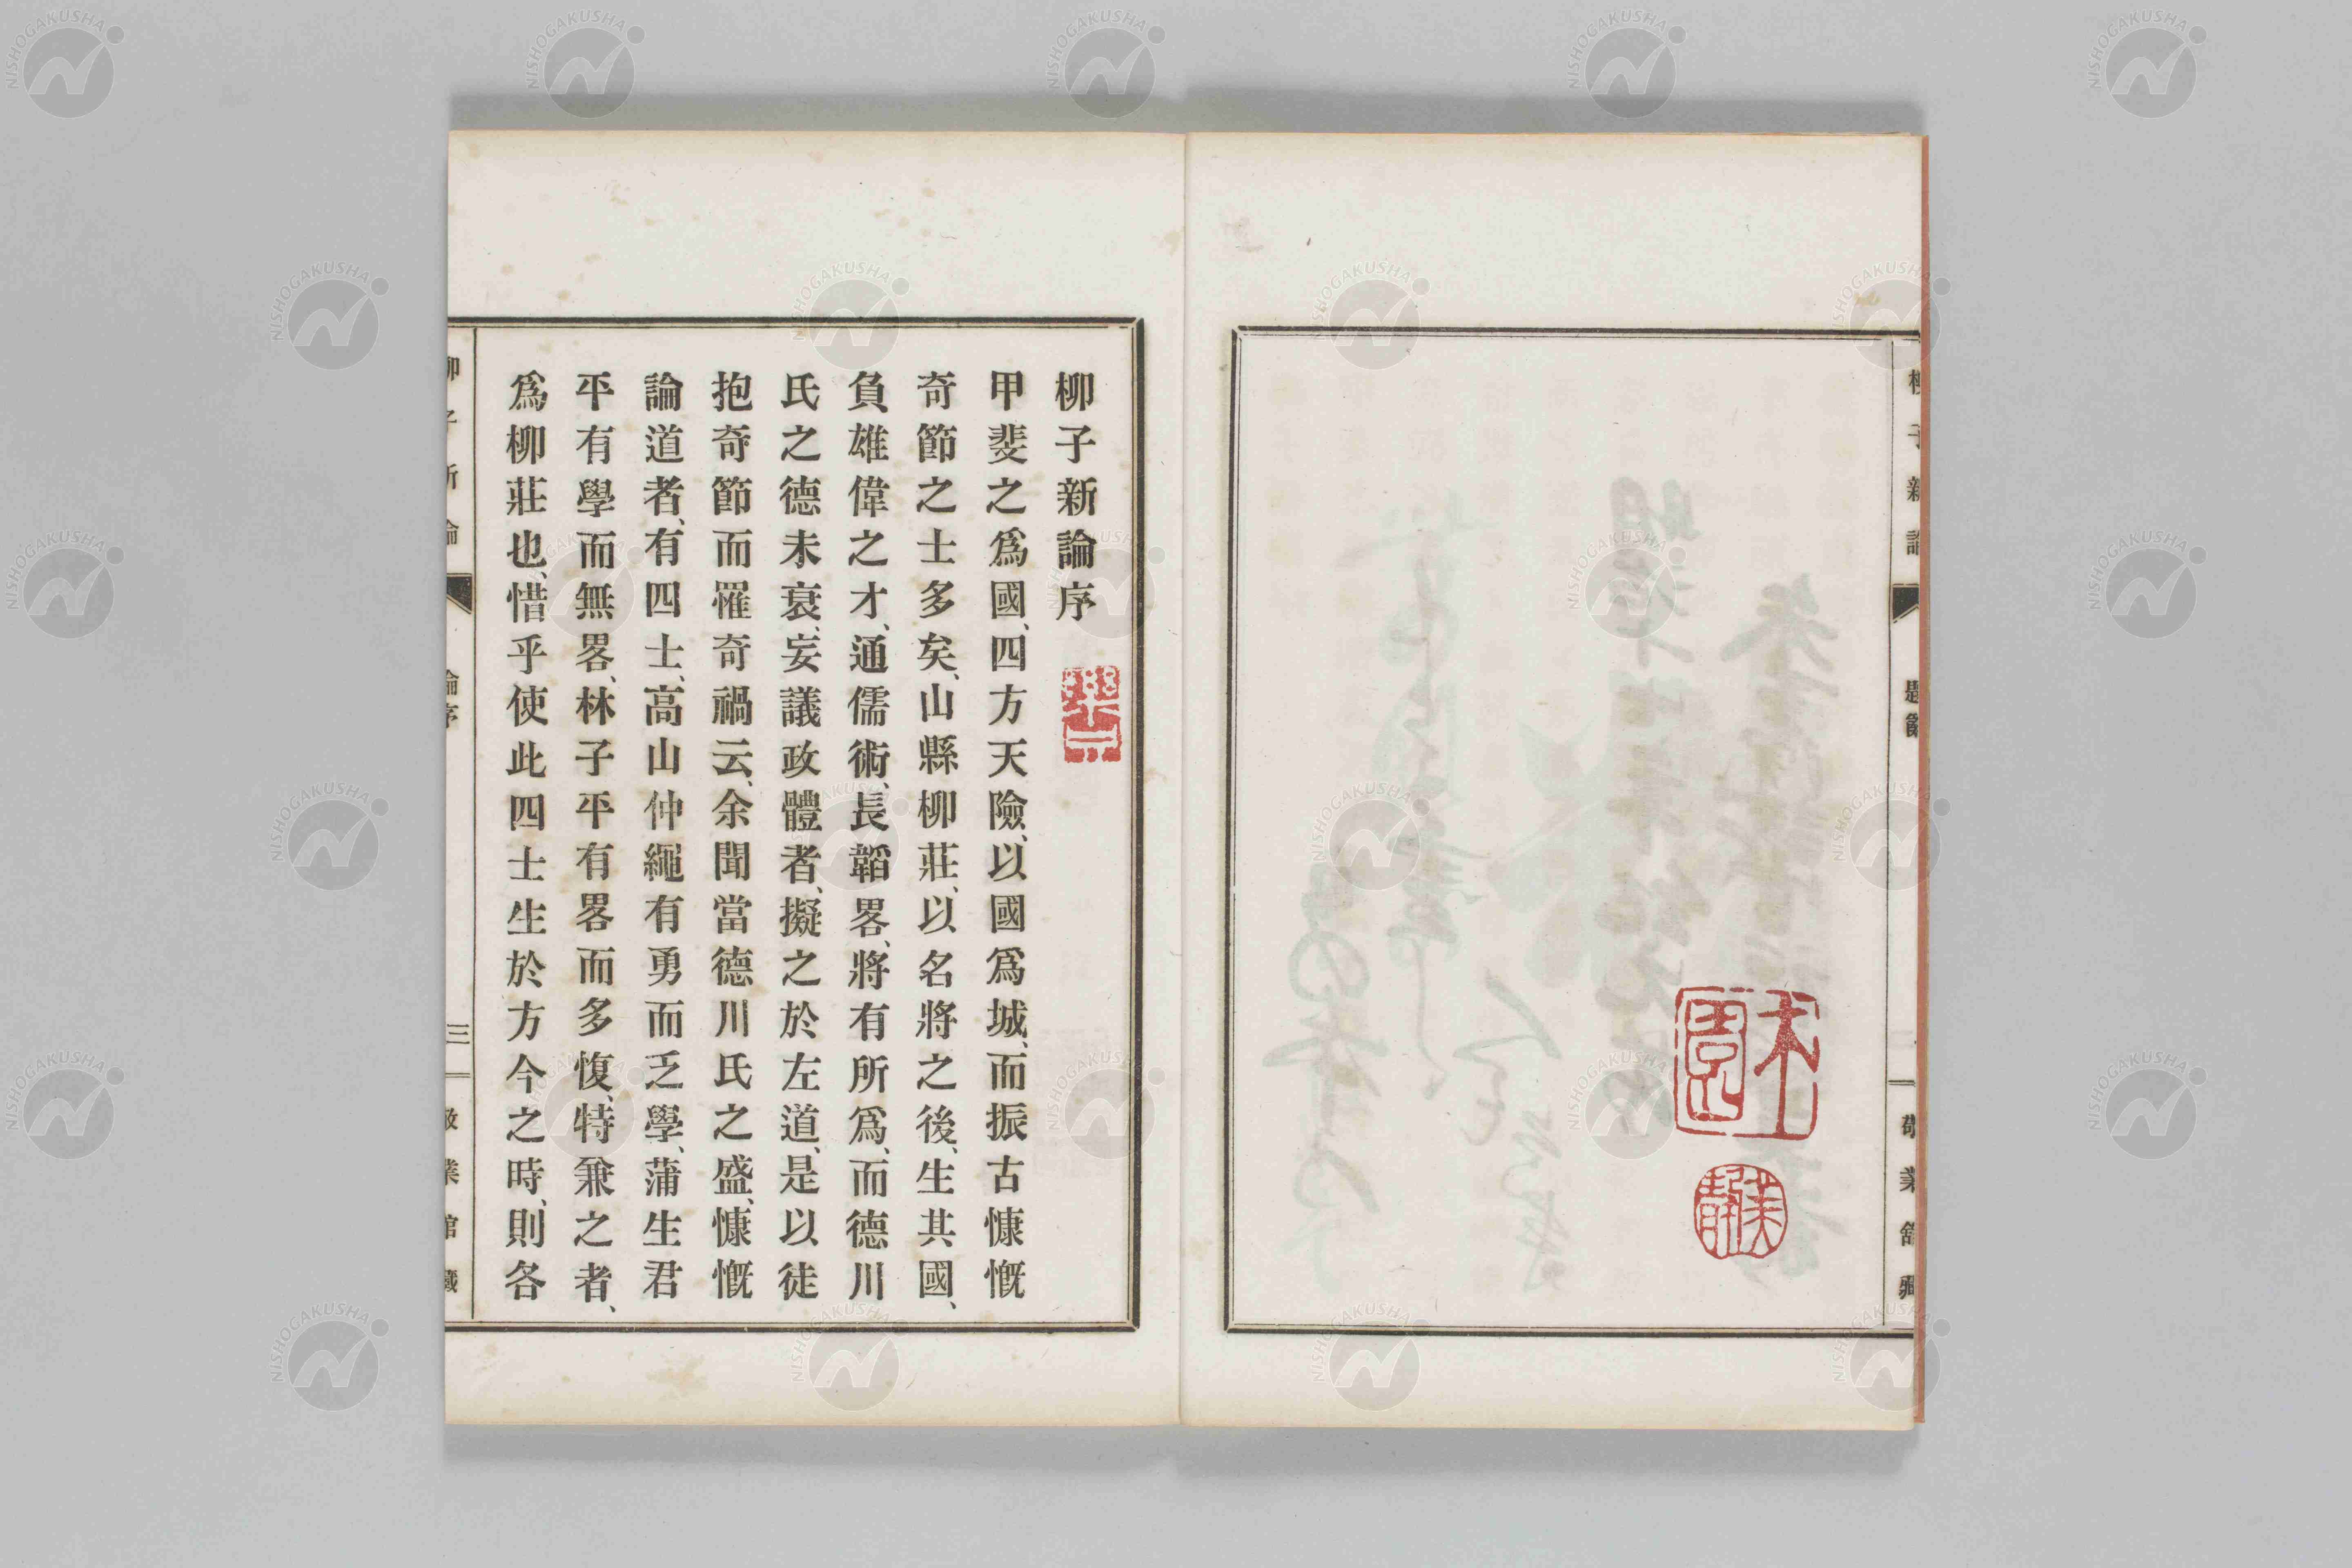 柳子新論
題辭
敬業館藏
柳子新論序
甲斐之爲國、四方天險、以國爲城、而振古慷慨
奇節之士多矣、山縣柳莊、以名將之後、生其國、
負雄偉之才、通儒術、長韜畧、將有所爲、而德川
氏之德未衰、妄議政體者、擬之於左道、是以徒
抱奇節而罹奇禍云、余聞當德川氏之盛、慷慨
論道者、有四士、高山仲繩有勇而乏學、蒲生君
平有學而無畧、林子平有畧而多愎、特兼之者、
爲柳莊也、惜乎使此四士生於方今之時、則各
柳子新論
論序
三
敬業館藏
NISHOGAKUSHA